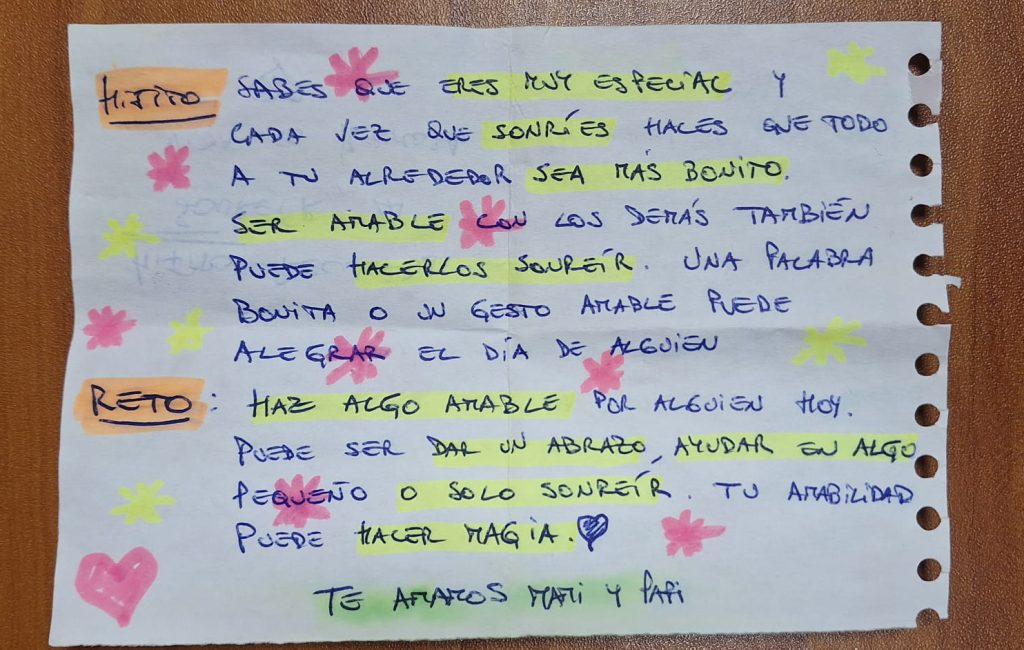 HIJITO SABES QUE ERES MUY ESPECIAL Y
CADA VEZ QUE SONRÍES HACES QUE TODO
A TU ALREDEDOR SEA MÁS BONITO.
SER AMABLE CON LOS DEMÁS TAMBIÉN
PUEDE HACERLOS SONREÍR. UNA PALABRA
BONITA O UN GESTO AMABLE PUEDE
ALEGRAR EL DÍA DE ALGUIEN
RETO: HAZ ALGO AMABLE POR ALGUIEN HOY.
PUEDE SER DAR UN ABRAZO, AYUDAR EN ALGO
PEQUEÑO O SOLO SONREÍR. TU AMABILIDAD
PUEDE HACER MAGIA.
TE AMAMOS MAMI Y PAPI